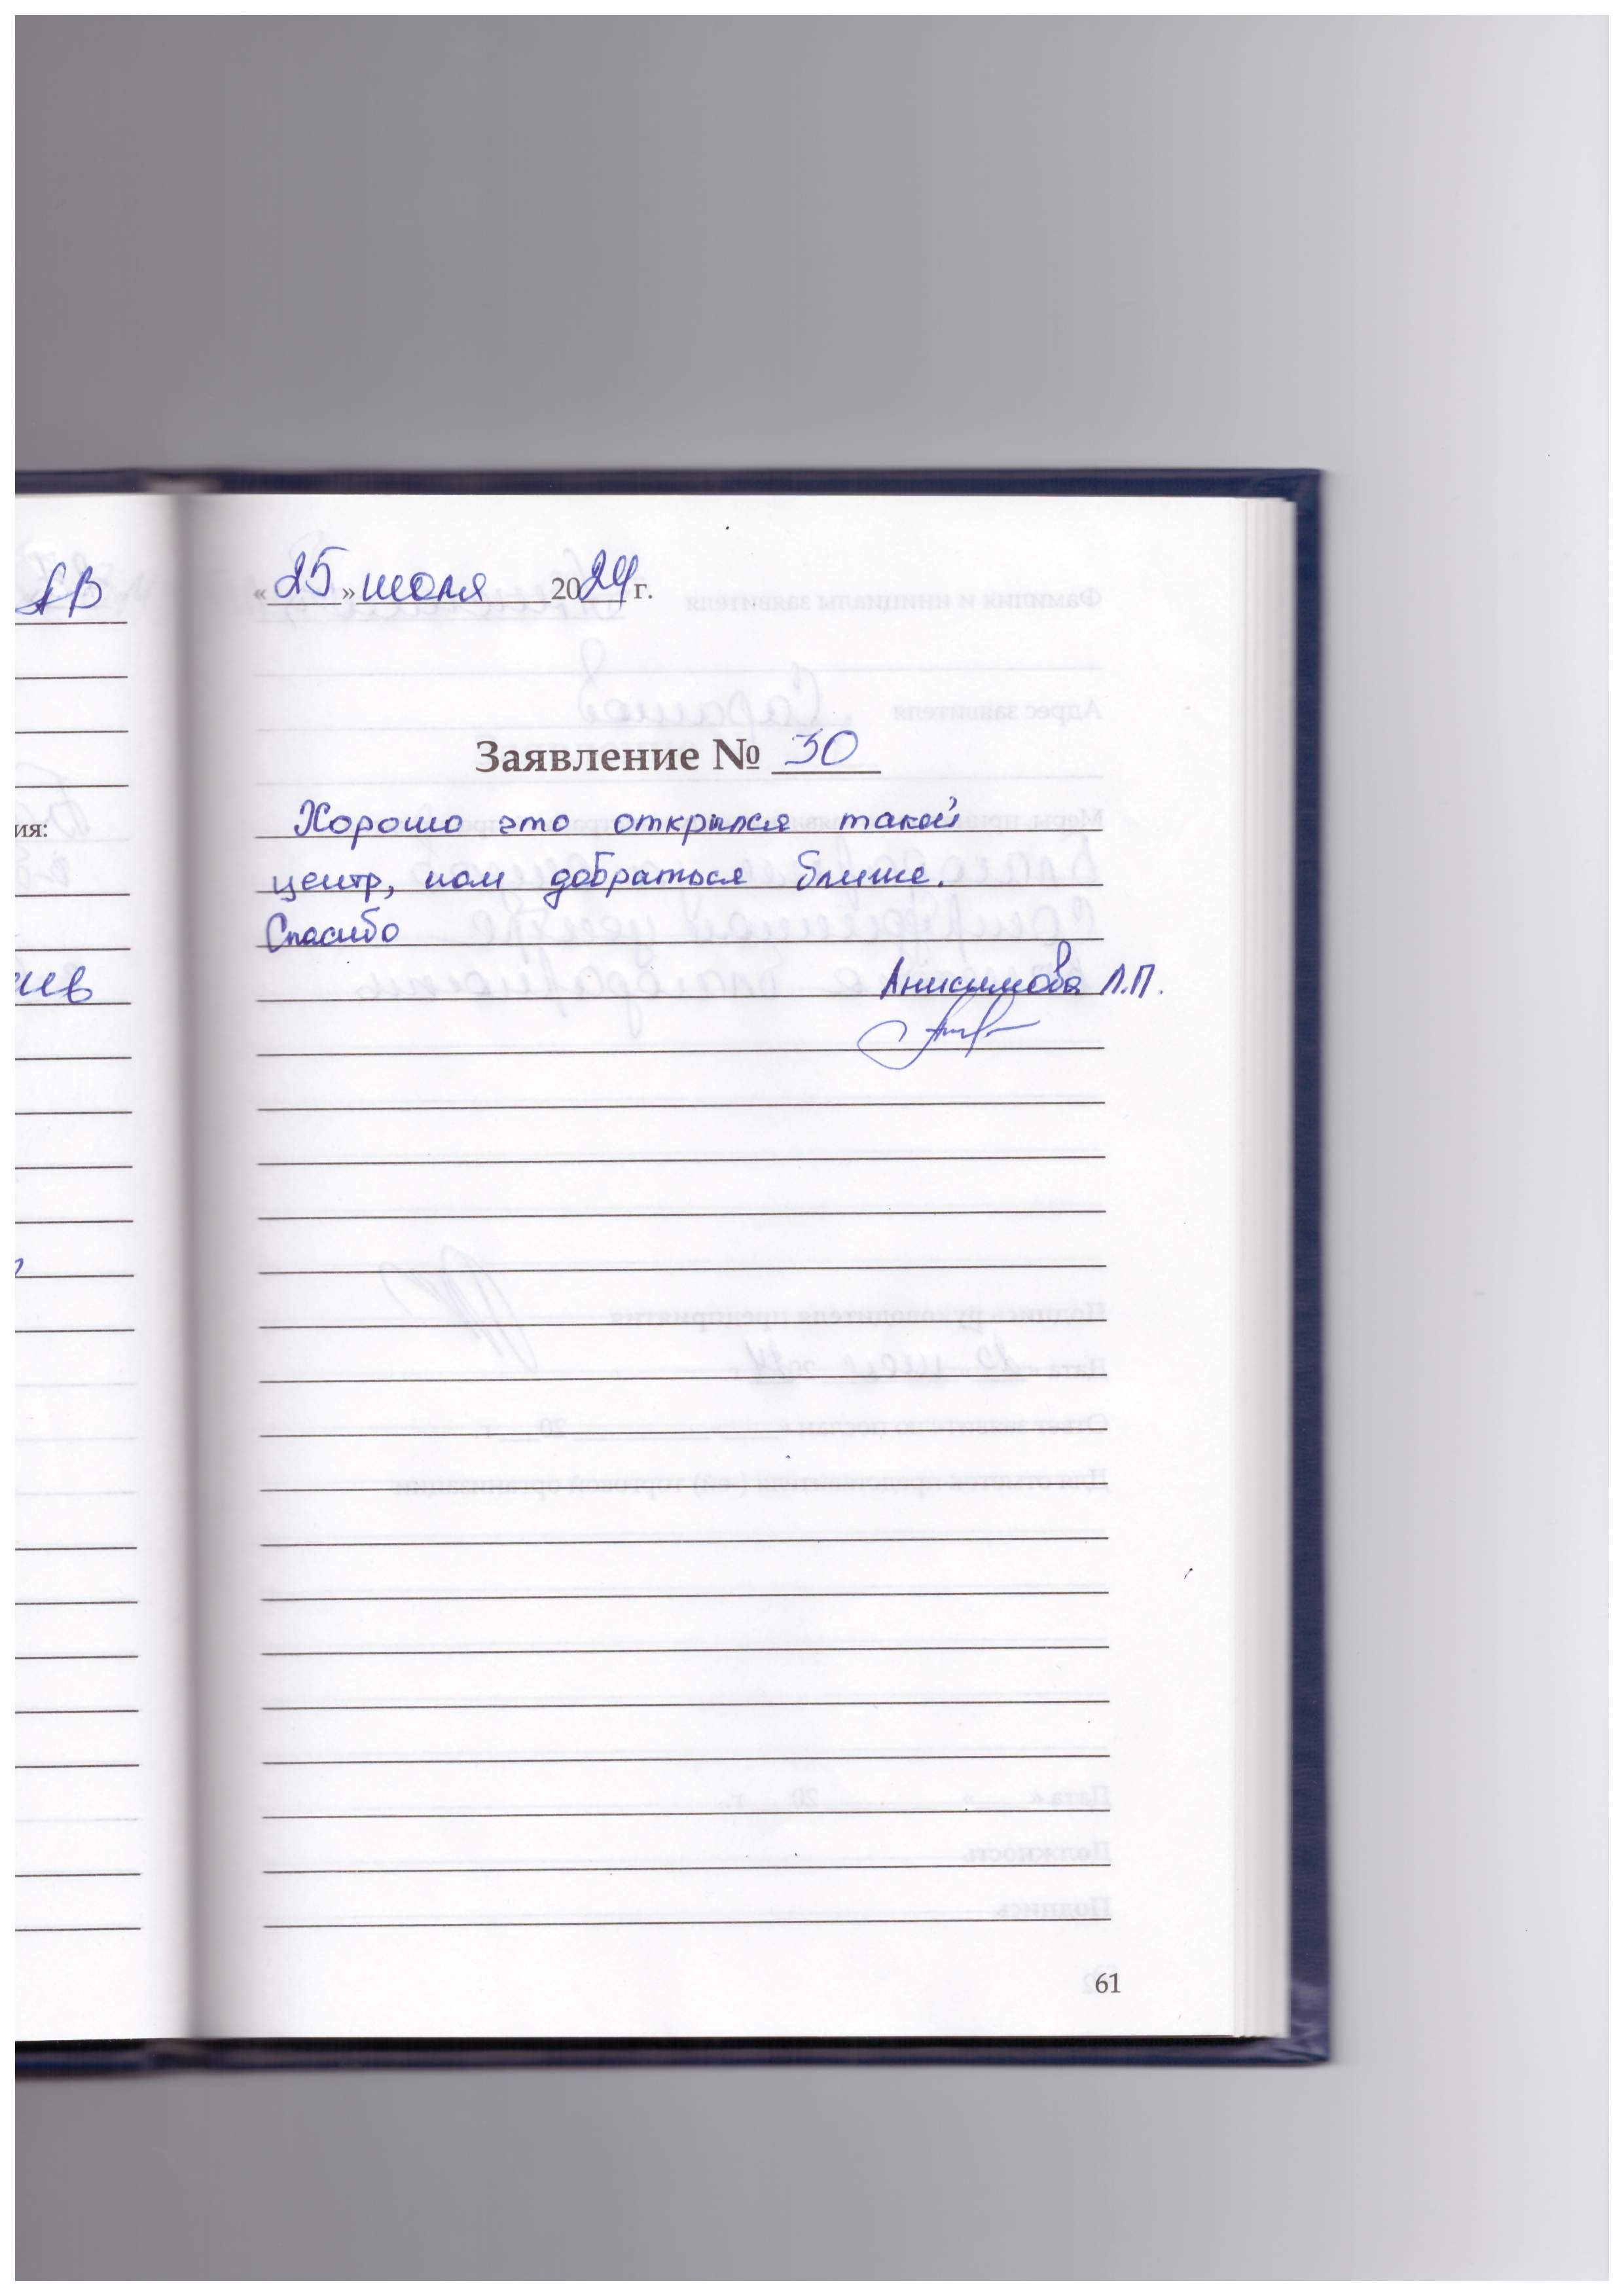 АВ
ия:
«25» июля 2024 г.
Заявление № 30
Хорошо что открылся такой
центр, нам добраться ближе.
Спасибо
Анисимова Л.П.
61